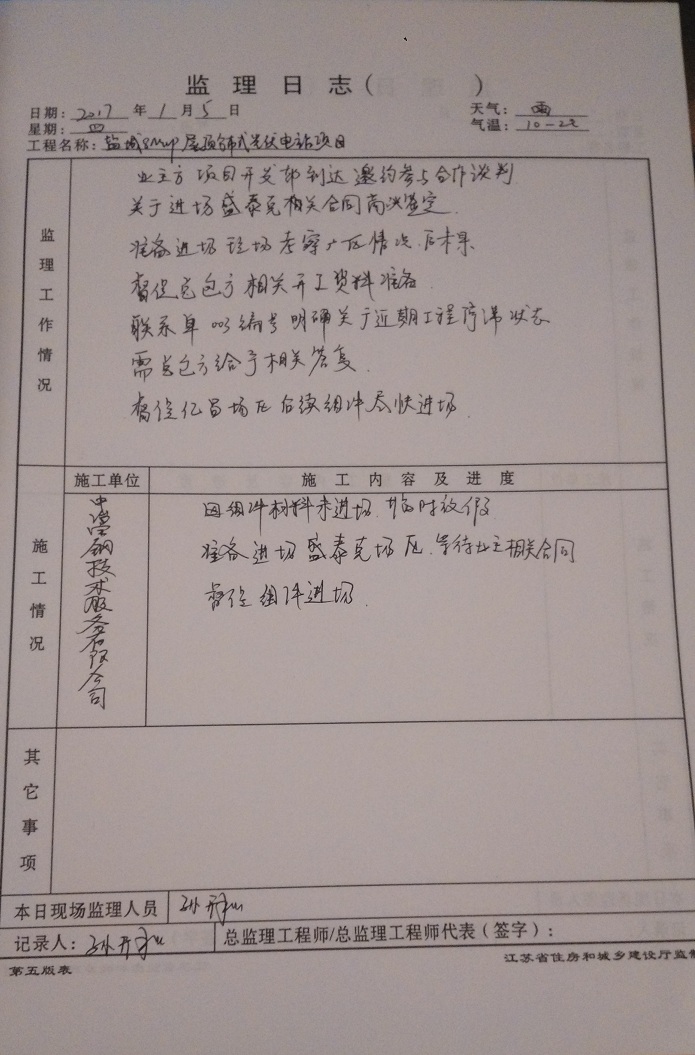 监理日志( )
日期: 2017 年 1 月 5 日 天气: 雨
星期: 四 气温: 10-2℃
工程名称: 盐城8MWp屋顶分布式光伏电站项目
监理工作情况
业主方项目开发部到达邀约参与合作谈判
关于进场盛泰克相关合同商洽签定.
准备进场现场考察厂区情况.
督促总包方相关开工资料准备.
联系单003编号明确关于近期工程停滞状态
需总包方给予相关答复.
督促亿昌场区后续组件尽快进场.
施工情况
施工单位 施工内容及进度
钢技术服务有限公司
因组件材料未进场.临时放假
准备进场盛泰克场区.等待业主相关合同
督促组件进场.
其它事项
本日现场监理人员 孙
记录人: 孙 总监理工程师/总监理工程师代表(签字):
第五版表 江苏省住房和城乡建设厅监制